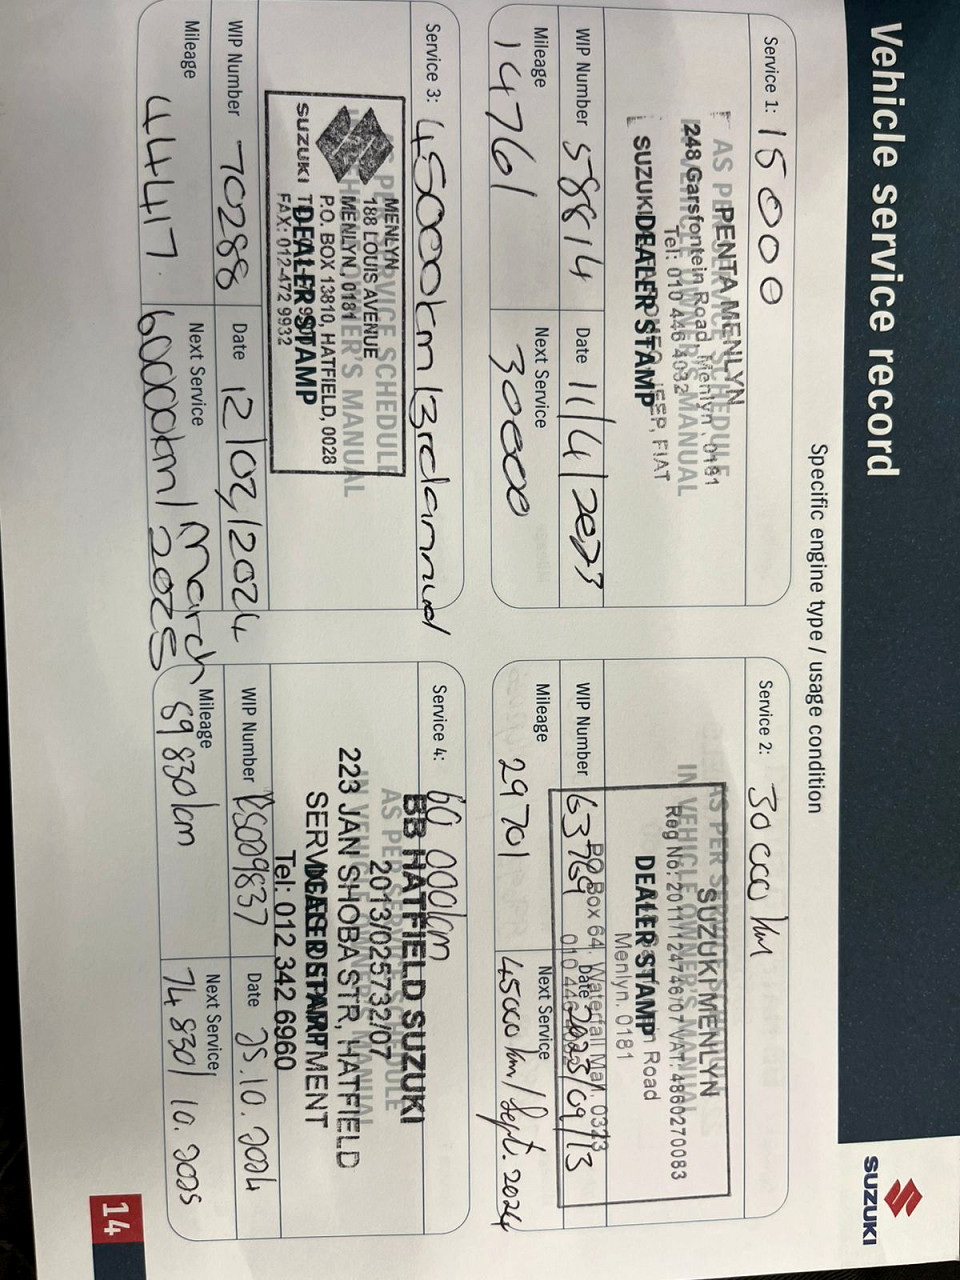 Vehicle service record
SUZUKI
Specific engine type / usage condition
Service 1: 15000
AS PER SERVICE SCHEDULE
IN VEHICLE OWNER'S MANUAL
DEALER STAMP
PENTA MENLYN
248 Garsfontein Road, Menlyn, 0181
Tel: 010 446 4032
SUZUKI
JEEP, FIAT
WIP Number 58814
Date 11/4/2023
Mileage 14761
Next Service 30000
Service 2: 30 000 km
AS PER
IN VEHICLE OWNER'S MANUAL
DEALER STAMP
SUZUKI MENLYN
Reg No: 2011/124746/07 VAT: 4860270083
Road
Menlyn. 0181
PO Box 64, Waterfall Mall. 0323
WIP Number 63769
Date 2023/09/13
Mileage 29701
Next Service 45000 km/ Sept. 2024
Service 3: 45000km/3rd annual
AS PER SERVICE SCHEDULE
IN VEHICLE OWNER'S MANUAL
DEALER STAMP
SUZUKI
MENLYN
188 LOUIS AVENUE
MENLYN, 0181
P.O. BOX 13810, HATFIELD, 0028
FAX: 012-472 9932
WIP Number 70288
Date 12/02/2024
Mileage 44417
Next Service 60000km/ March 2025
Service 4: 60 000km
AS PER SERVICE SCHEDULE
IN VEHICLE OWNER'S MANUAL
DEALER STAMP
BB HATFIELD SUZUKI
2013/025732/07
223 JAN SHOBA STR, HATFIELD
SERVICE DEPARTMENT
Tel: 012 342 6960
WIP Number RS009837
Date 25.10.2024
Mileage 59830km
Next Service 74 830/ 10.2025
14